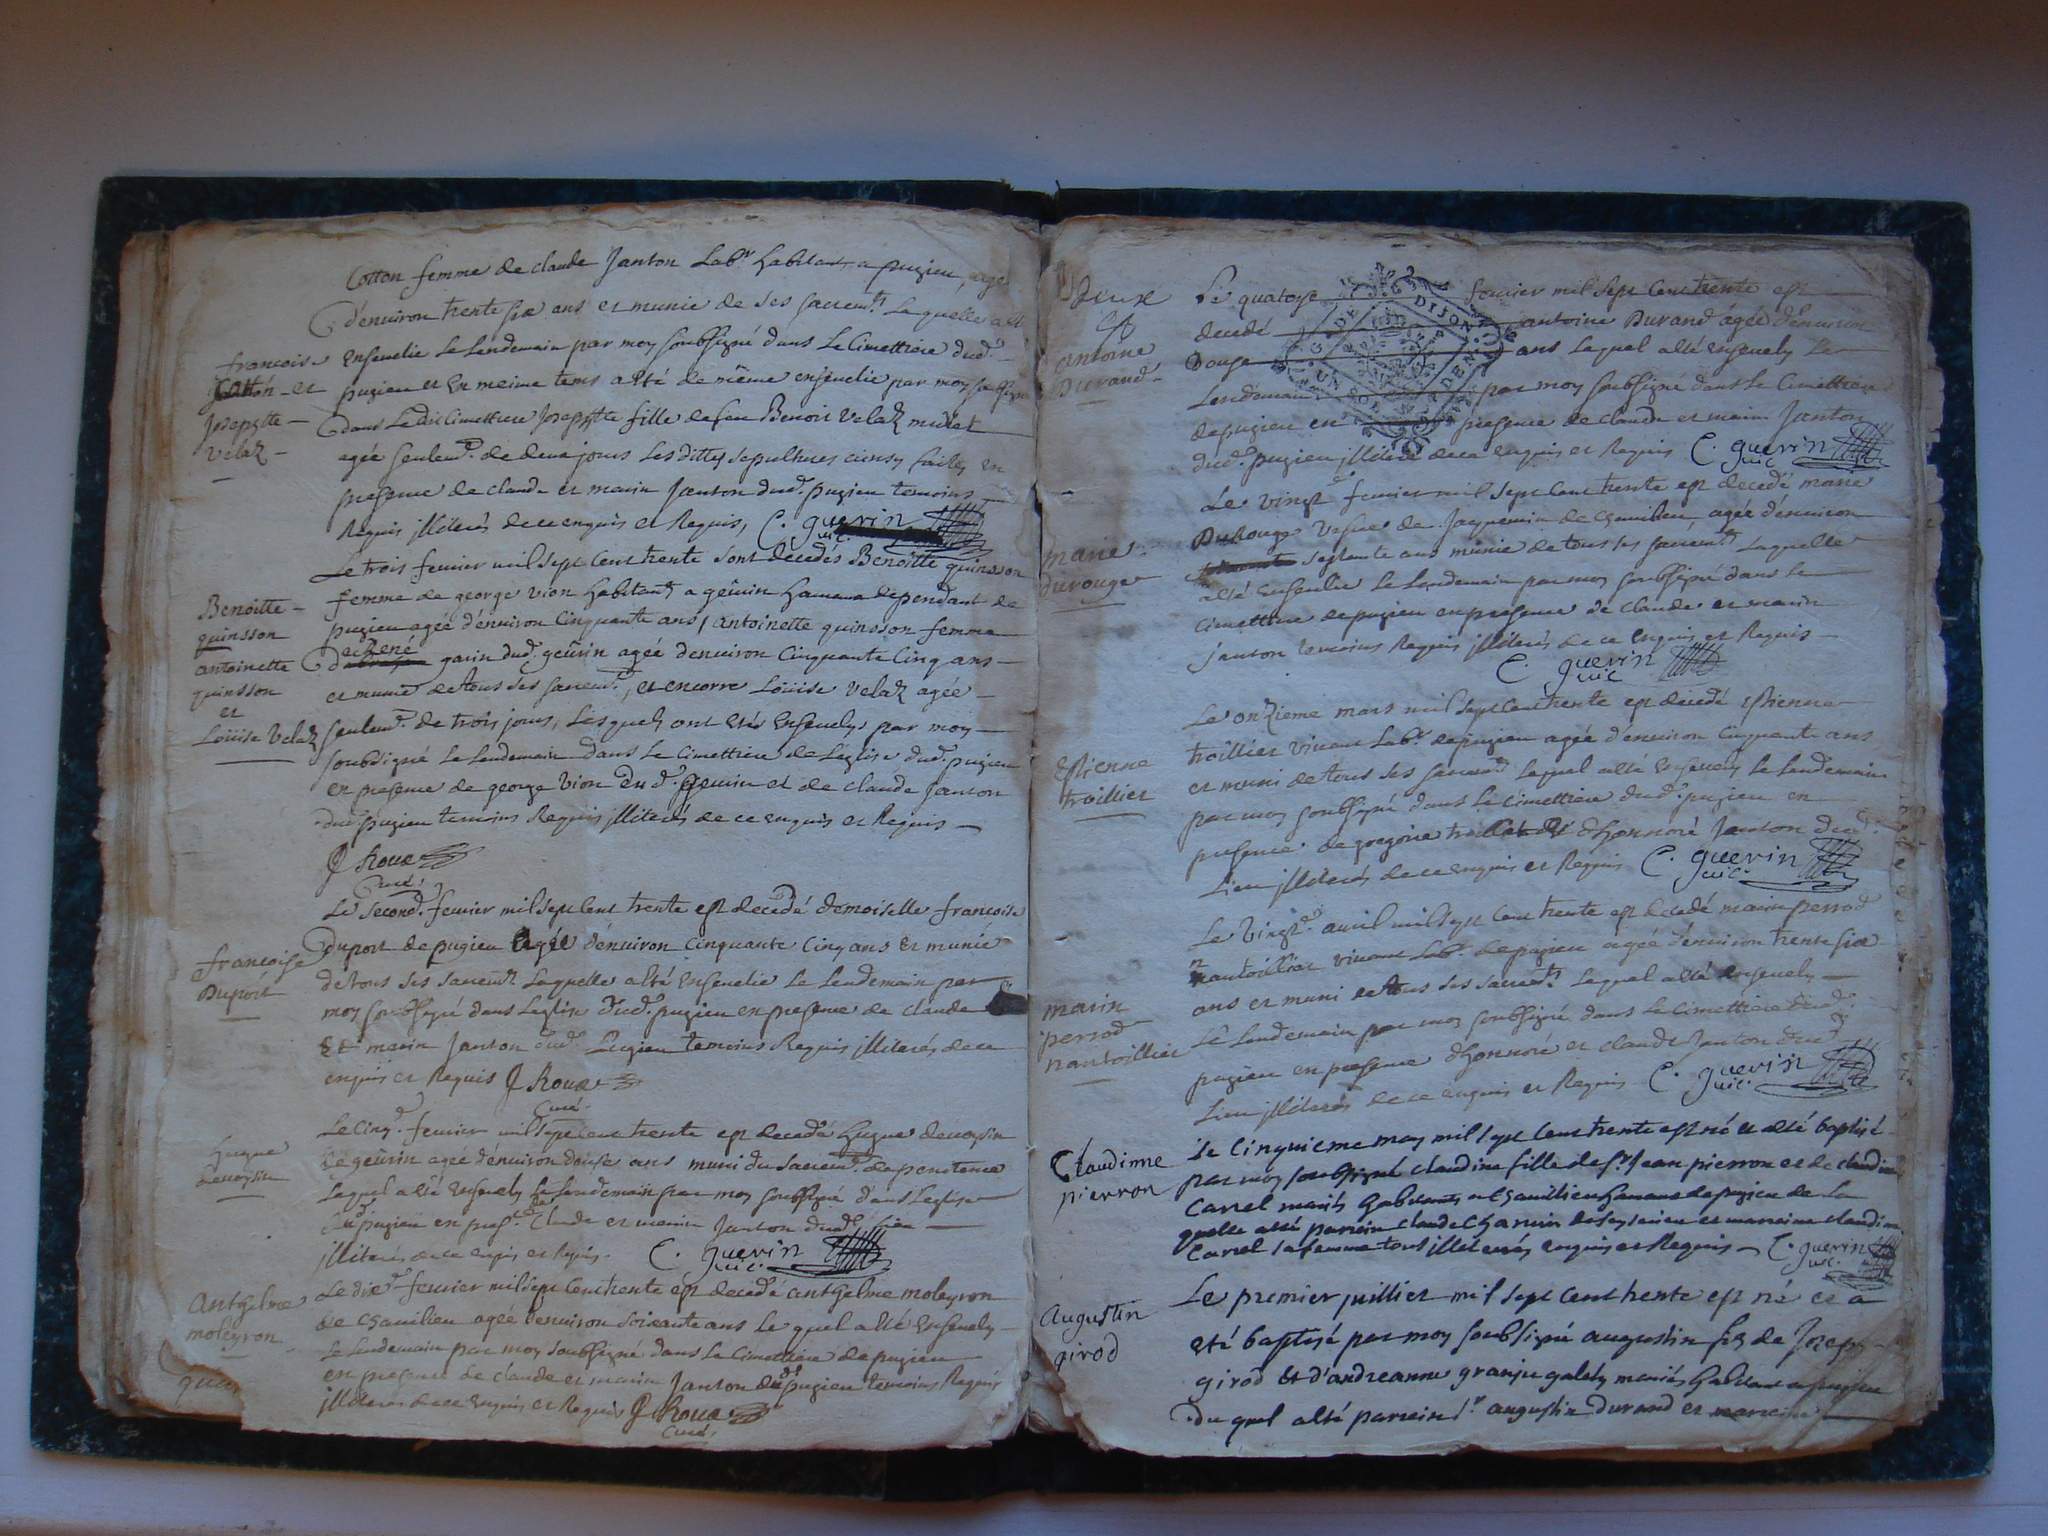 Cotton femme de claude Janton Lab.r habitant a pugieu, agée
d'environ trente six ans et munie de ses sacrem.ts Laquelle a été
francoise ensevelie Le Lendemain par moy soubsigné dans Le Cimettiere dud.
Cotton et pugieu et en meime tems a été de même ensevelie par moy soubsigné
Josephte dans Led. Cimettiere Josephte fille de feu Benoit Velaz
Velaz agée seulem.t de deux jours Les dittes sepultures ainsy faites en
presence de claude et marin Janton dud. pugieu temoins
Requis illiterés de ce enquis et Requis, C. guerin
vic.
Le trois fevrier mil sept cent trente sont decedés Benoitte quinsson
Benoitte femme de george vion habitant a gevrin hameau dependant de
quinsson pugieu agée d'environ Cinquante ans, antoinette quinsson femme
antoinette garin dud. gevrin agée d'environ Cinquante Cinq ans
quinsson et munie de tous ses sacrem.ts, et encorre Loüise velaz agée
et
Loüise Velaz seulem.t de trois jours, Lesquels ont etés ensevelys par moy
soubsigné Le Lendemain dans Le Cimettiere de L'eglise dud. pugieu
en presence de george vion dud. gevrin et de claude Janton
dud. pugieu temoins Requis illiterés de ce enquis et Requis
J Roux
curé
Le second fevrier mil sept cent trente est decedé demoiselle francoise
francoise Duport de pugieu agée d'environ cinquante cinq ans et munie
Duport de tous ses sacrem.ts Laquelle a été ensevelie Le Lendemain par
moy soubsigné dans L'eglise dud. pugieu en presence de claude
Et marin Janton dud. Pugieu temoins Requis illiterés de ce
enquis et Requis J Roux
curé
Le Cinq fevrier mil sept cent trente est decedé hugue devoysin
hugue de gevrin agée d'environ douse ans muni du sacrem.t de penitence
devoysin Lequel a été ensevely Le Lendemain par moy soubsigné dans L'eglise
du pugieu en pres.ce de Claude et marin Janton dud. Lieu
illiterés de ce enquis et Requis. C. guerin
vic.
Antgelme Le dix fevrier mil sept cent trente est decedé antgelme moleyron
moleyron de chamilieu agée d'environ soixante ans Le quel a été ensevely
Le Lendemain par moy soubsigné dans Le Cimettiere de pugieu
en presence de claude et marin Janton dud. pugieu temoins Requis
illiterés de ce enquis et Requis J Roux
curé
Deux
Le quatorse fevrier mil sept cent trente est
decedé antoine Durand agée d'environ
antoine Douse ans Lequel a été ensevely Le
Durand Lendemain par moy soubsigné dans Le Cimettiere
de pugieu en presence de claude et marin Janton
dud. pugieu illiterés de ce enquis et Requis C. guerin
vic
DIJON
Le vingt fevrier mil sept cent trente est decedé marie
Durouge vefve de Jaquemin de chamilieu, agée d'environ
marie septante ans munie de tous ses sacrem.ts Laquelle
durouge a été ensevelie Le Lendemain par moy soubsigné dans Le
cimettiere de pugieu en presence de claude et marin
janton temoins Requis illiterés de ce enquis et Requis
C. guerin
vic
Le onzieme mars mil sept cent trente est decedé Estienne
Estienne troillier vivant Lab.r de pugieu agée d'environ cinquante ans
troillier et muni de tous ses sacrem.ts Lequel a été ensevely Le Lendemain
par moy soubsigné dans Le cimettiere dud. pugieu en
presence de gregoire troillier et d'honnoré Janton dud.
Lieu illiterés de ce enquis et Requis C. guerin
vic.
Le Vingt avril mil sept cent trente est decedé marin perrod
nantoillier vivant Lab.r de pugieu agée d'environ trente six
marin ans et muni de tous ses sacrem.ts Lequel a été ensevely
perrod Le Lendemain par moy soubsigné dans Le cimettiere dud.
nantoillier pugieu en presence d'honnoré et claude Janton dud.
Lieu illiterés de ce enquis et Requis C. guerin
vic.
Le cinquieme may mil sept cent trente est né et a été baptisé
Claudinne par moy soubsigné claudine fille de s.r Jean pierron et de claudine
pierron Carrel mariés habitants a chamillieu hameau de pugieu de La
quelle a été parrein claude et marreine claudine
Carrel sa femme tous illiterés enquis et Requis C. guerin
vic.
Le premier juillier mil sept cent trente est né et a
Augustin eté baptisé par moy soubsigné augustin fils de Joseph
girod girod et d'andreanne mariés habitant a pugieu
du quel a été parrein s.r augustin durand et marreine